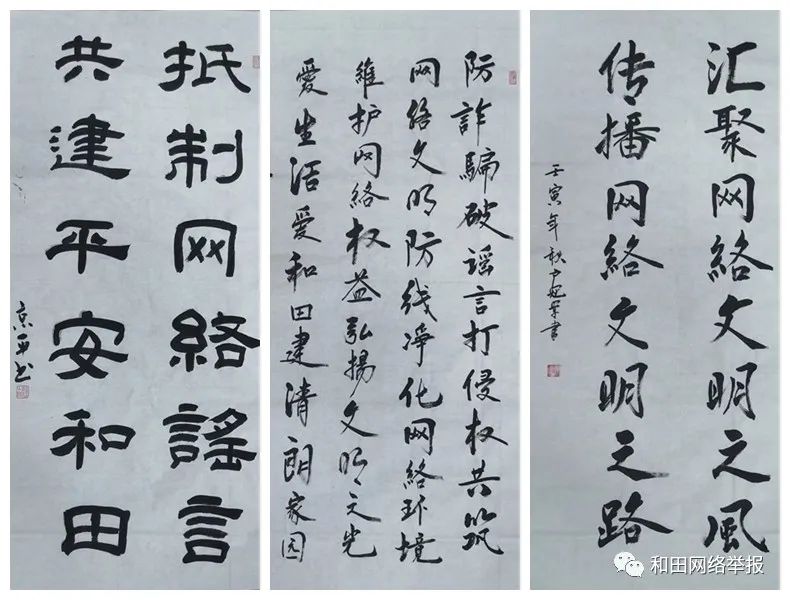 抵制网絡謠言
共建平安和田
防詐騙破谣言打侵权共筑
网络文明防线净化网絡环境
維护网絡权益弘揚文明之光
爱生活爱和田建清朗家园
汇聚网絡文明之風
传播网絡文明之路
壬寅年秋
和田网络举报